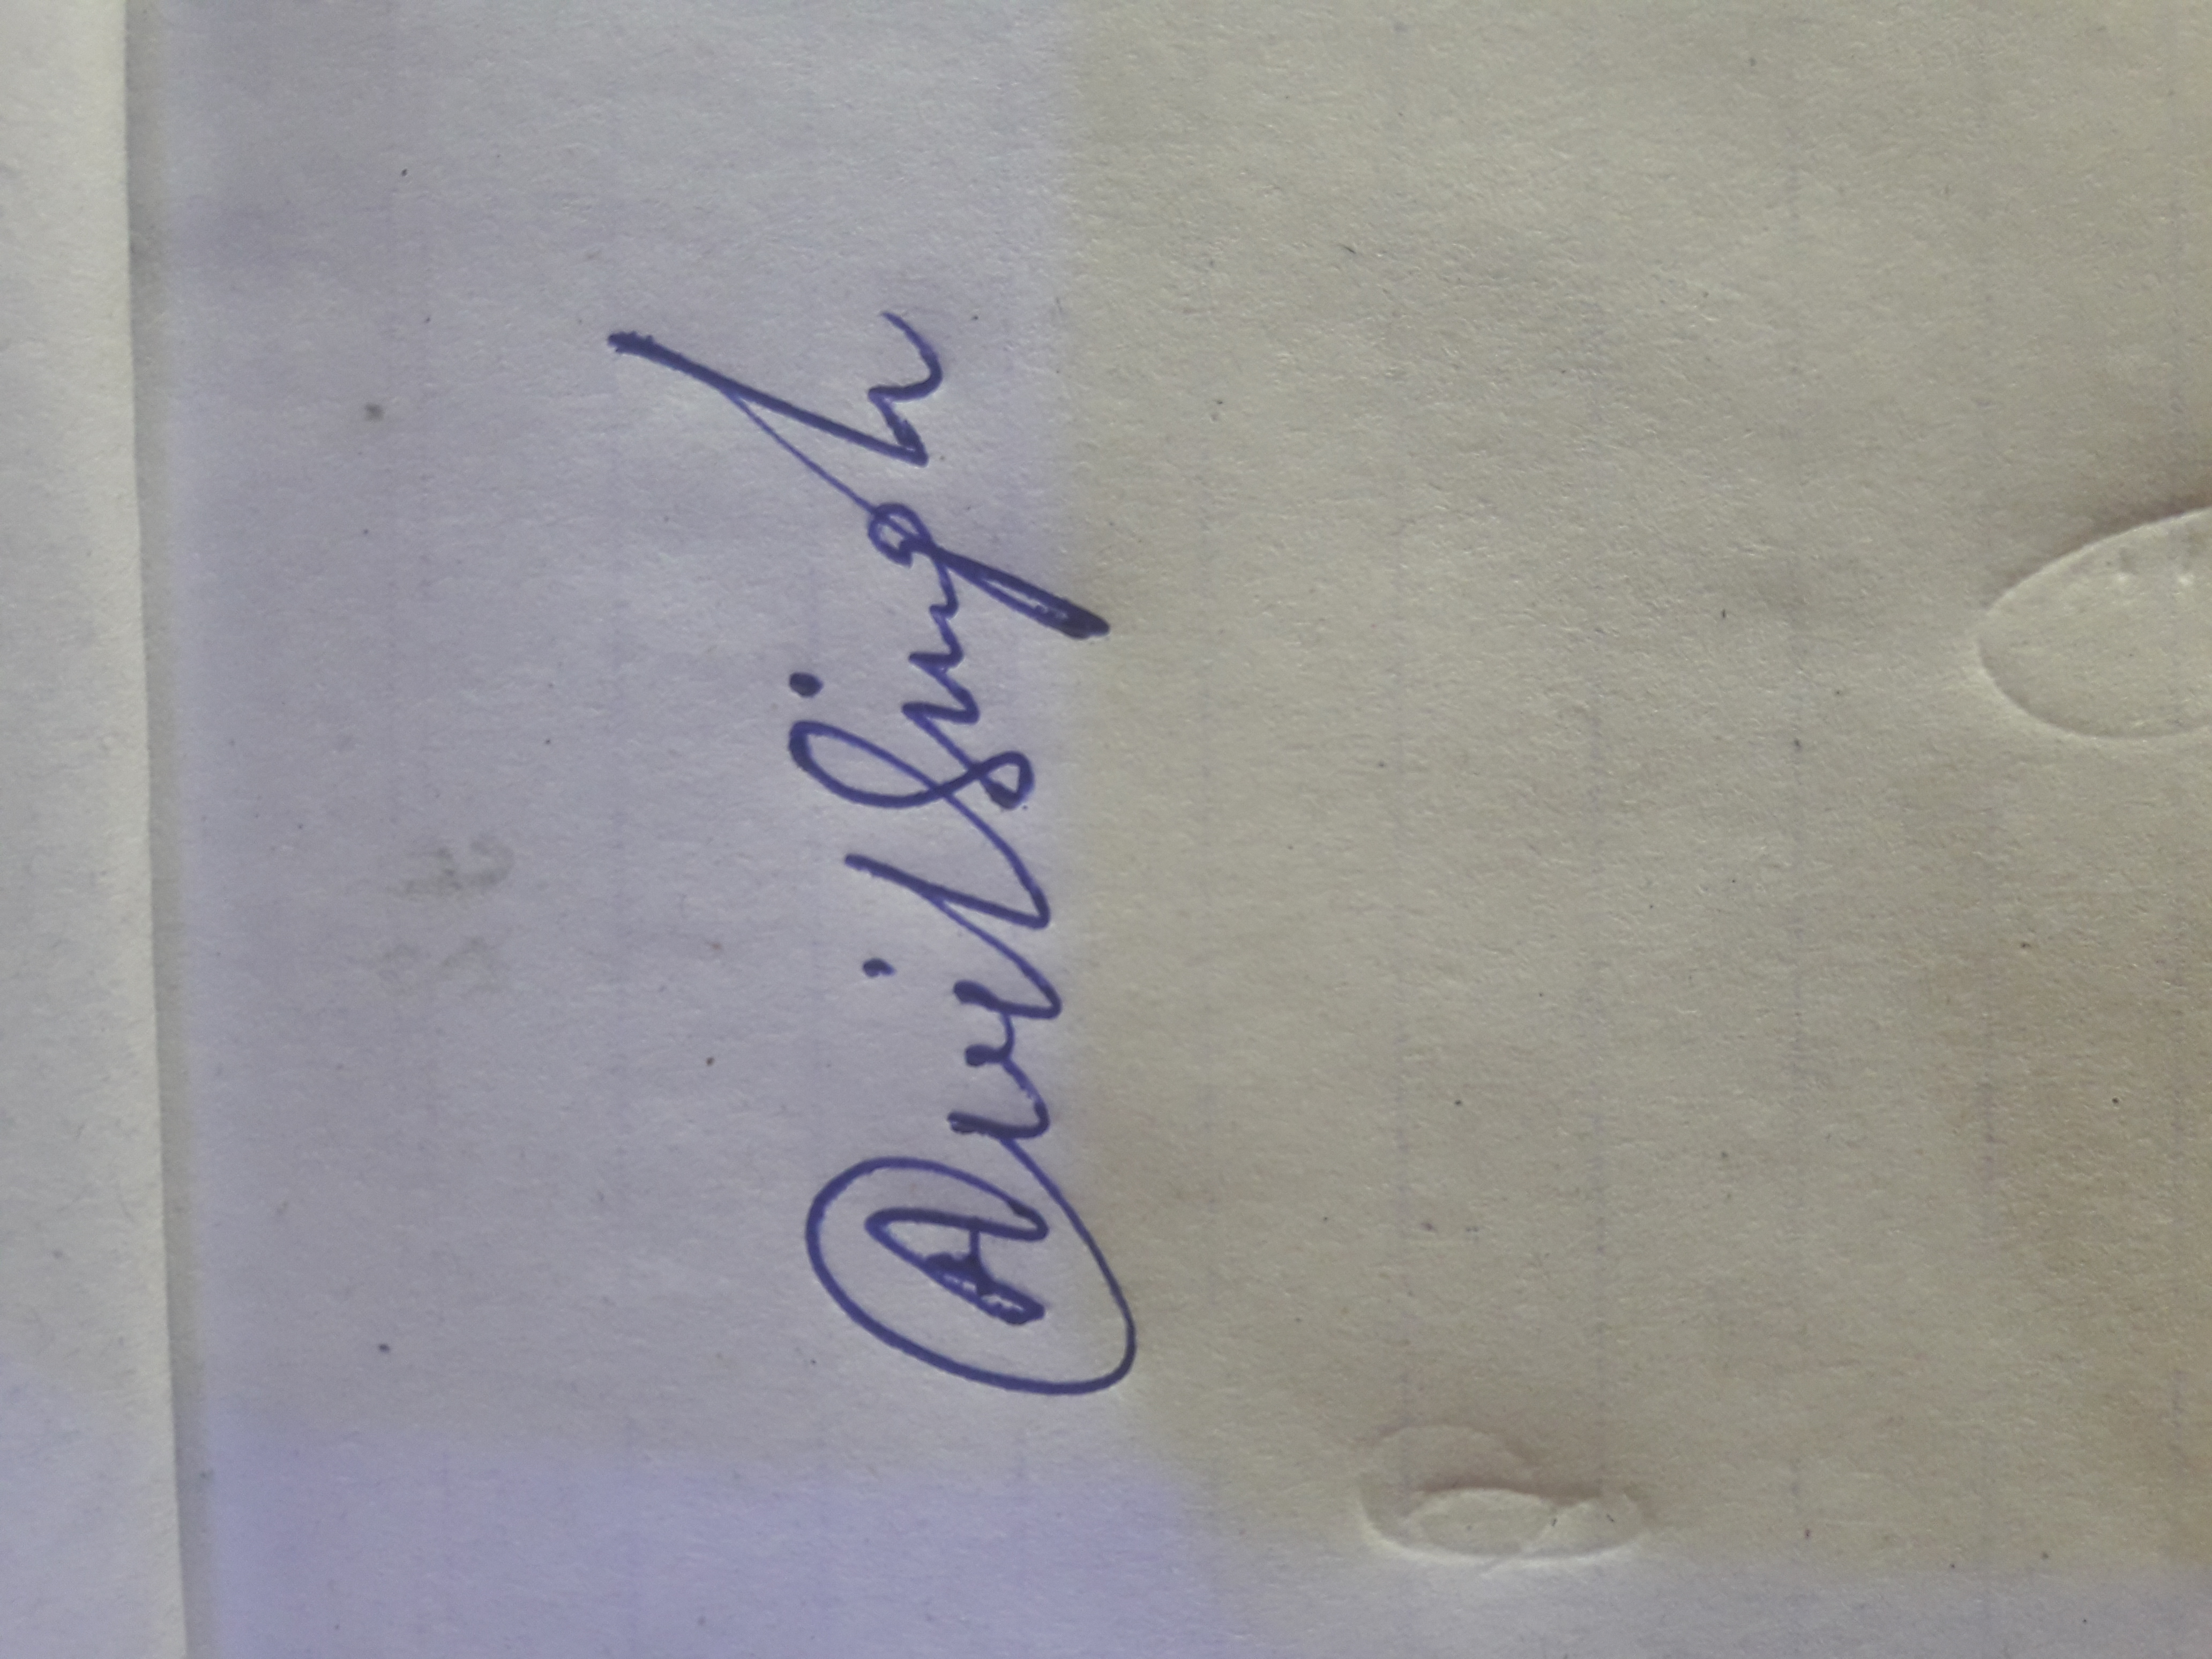 Anil Singh